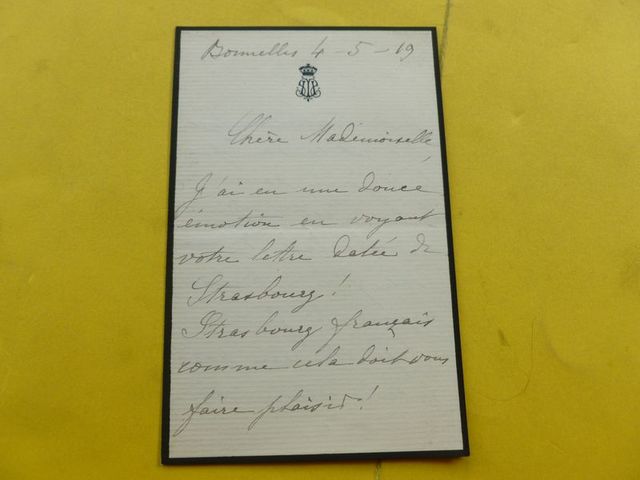 Bonnelles 4-5-19
Chère Mademoiselle
J'ai eu une douce
émotion en voyant
votre lettre datée de
Strasbourg!
Strasbourg français
comme cela doit vous
faire plaisir!